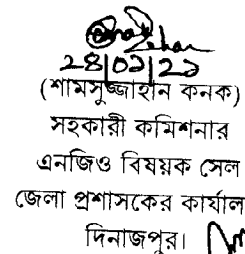 ২৪|০১|২১
(শামসুজ্জাহান কনক)
সহকারী কমিশনার
এনজিও বিষয়ক সেল
জেলা প্রশাসকের কার্যাল
দিনাজপুর।